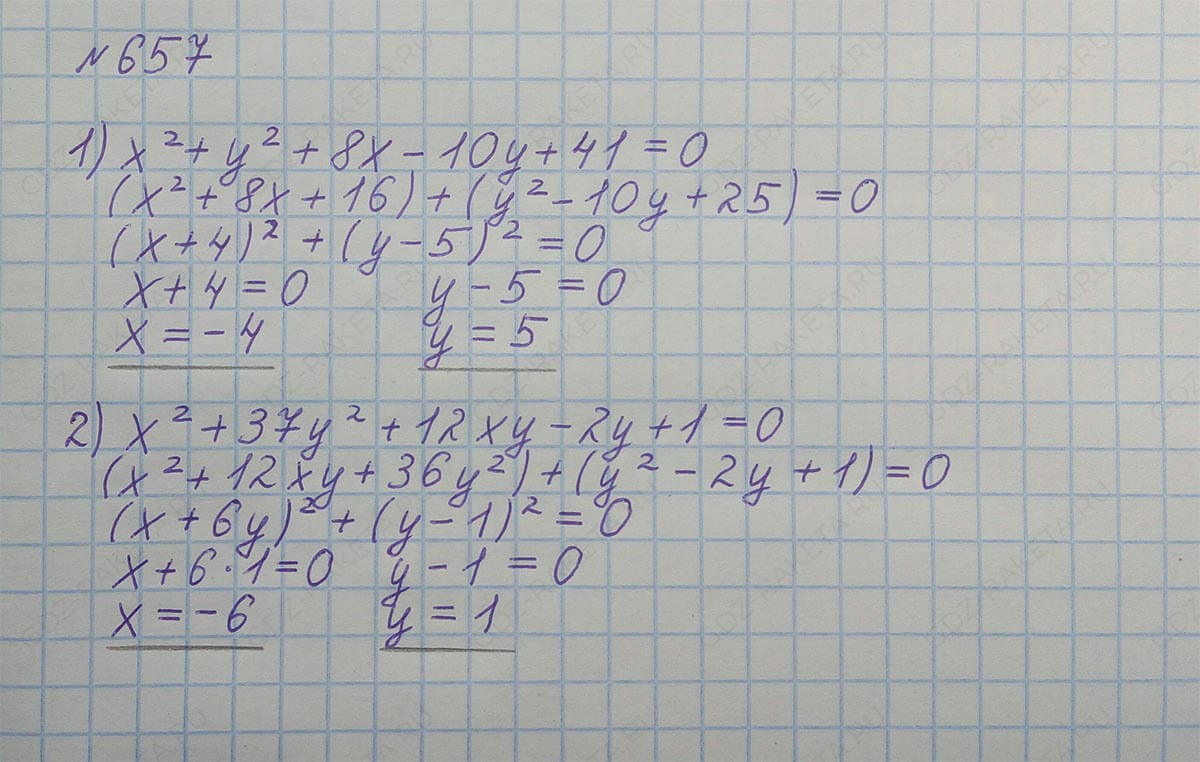 №657
1) x² + y² + 8x - 10y + 41 = 0
(x² + 8x + 16) + (y² - 10y + 25) = 0
(x + 4)² + (y - 5)² = 0
x + 4 = 0 y - 5 = 0
x = - 4 y = 5
2) x² + 37y² + 12xy - 2y + 1 = 0
(x² + 12xy + 36y²) + (y² - 2y + 1) = 0
(x + 6y)² + (y - 1)² = 0
x + 6·1 = 0 y - 1 = 0
x = - 6 y = 1
GDZ-RAKETA.RU